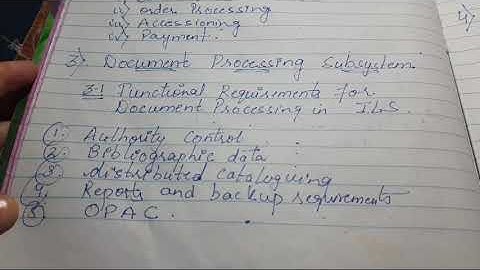 ii) order Processing
iii) Accessioning
iv) Payment.
3) Document Processing Subsystem.
3.1 Functional Requirements for
Document Processing in ILS.
1. Authority Control
2. Bibliographic data
3. distributed cataloguing
4. Reports and backup requirements
5 OPAC.
4)